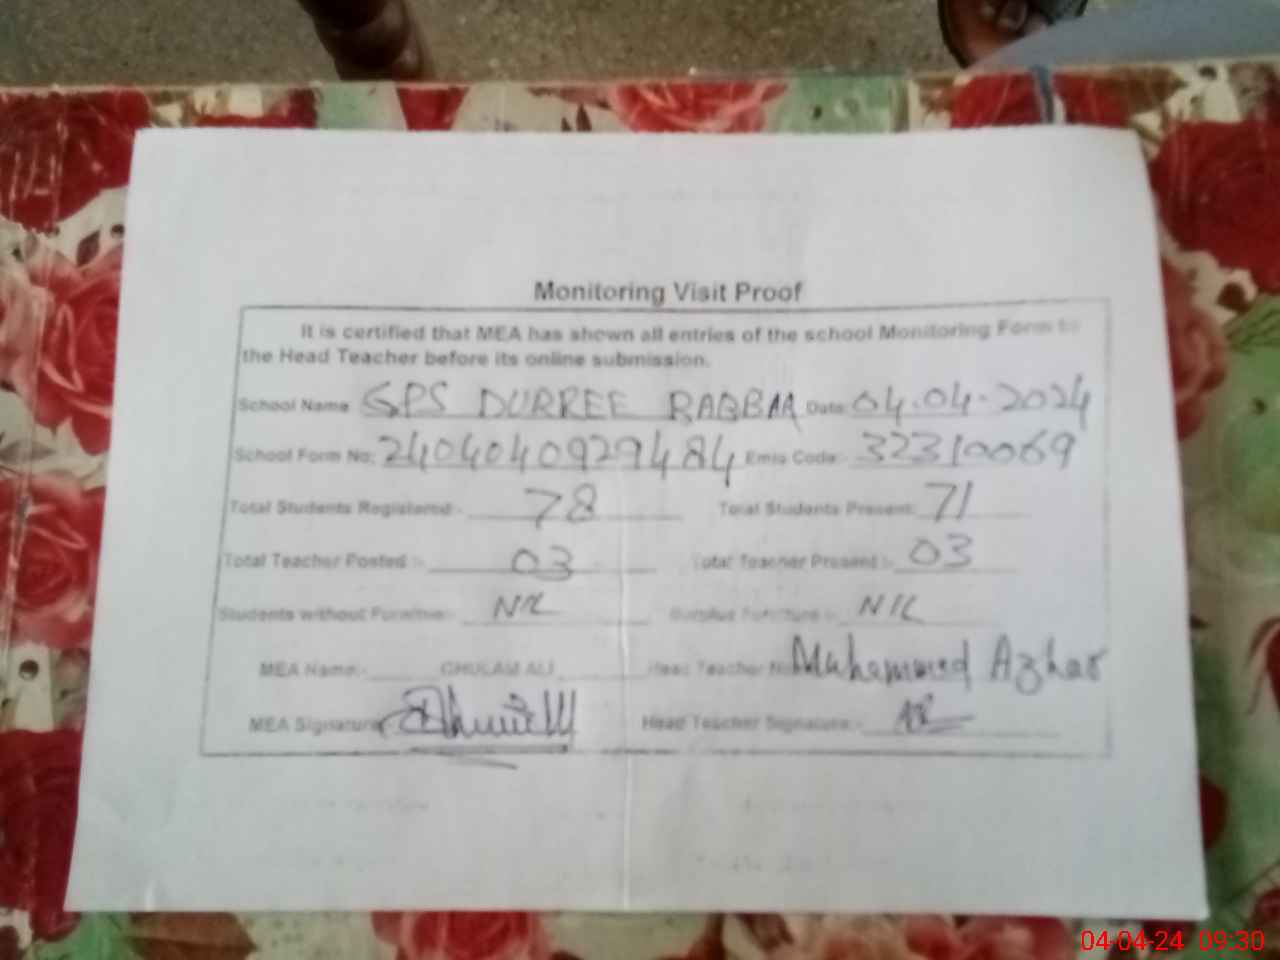 Monitoring Visit Proof
It is certified that MEA has shown all entries of the school Monitoring Form to
the Head Teacher before its online submission.
School Name GPS DURREE RABBAA Date: 04.04.2024
School Form No: 2404040929484 Emis Code:- 32310069
Total Students Registered:- 78 Total Students Present: 71
Total Teacher Posted :- 03 Total Teacher Present :- 03
Students without Furniture:- NIL Surplus Furniture :- NIL
MEA Name:- GHULAM ALI Head Teacher Muhammed Azhar
MEA Signature Head Teacher Signature:-
04-04-24 09:30